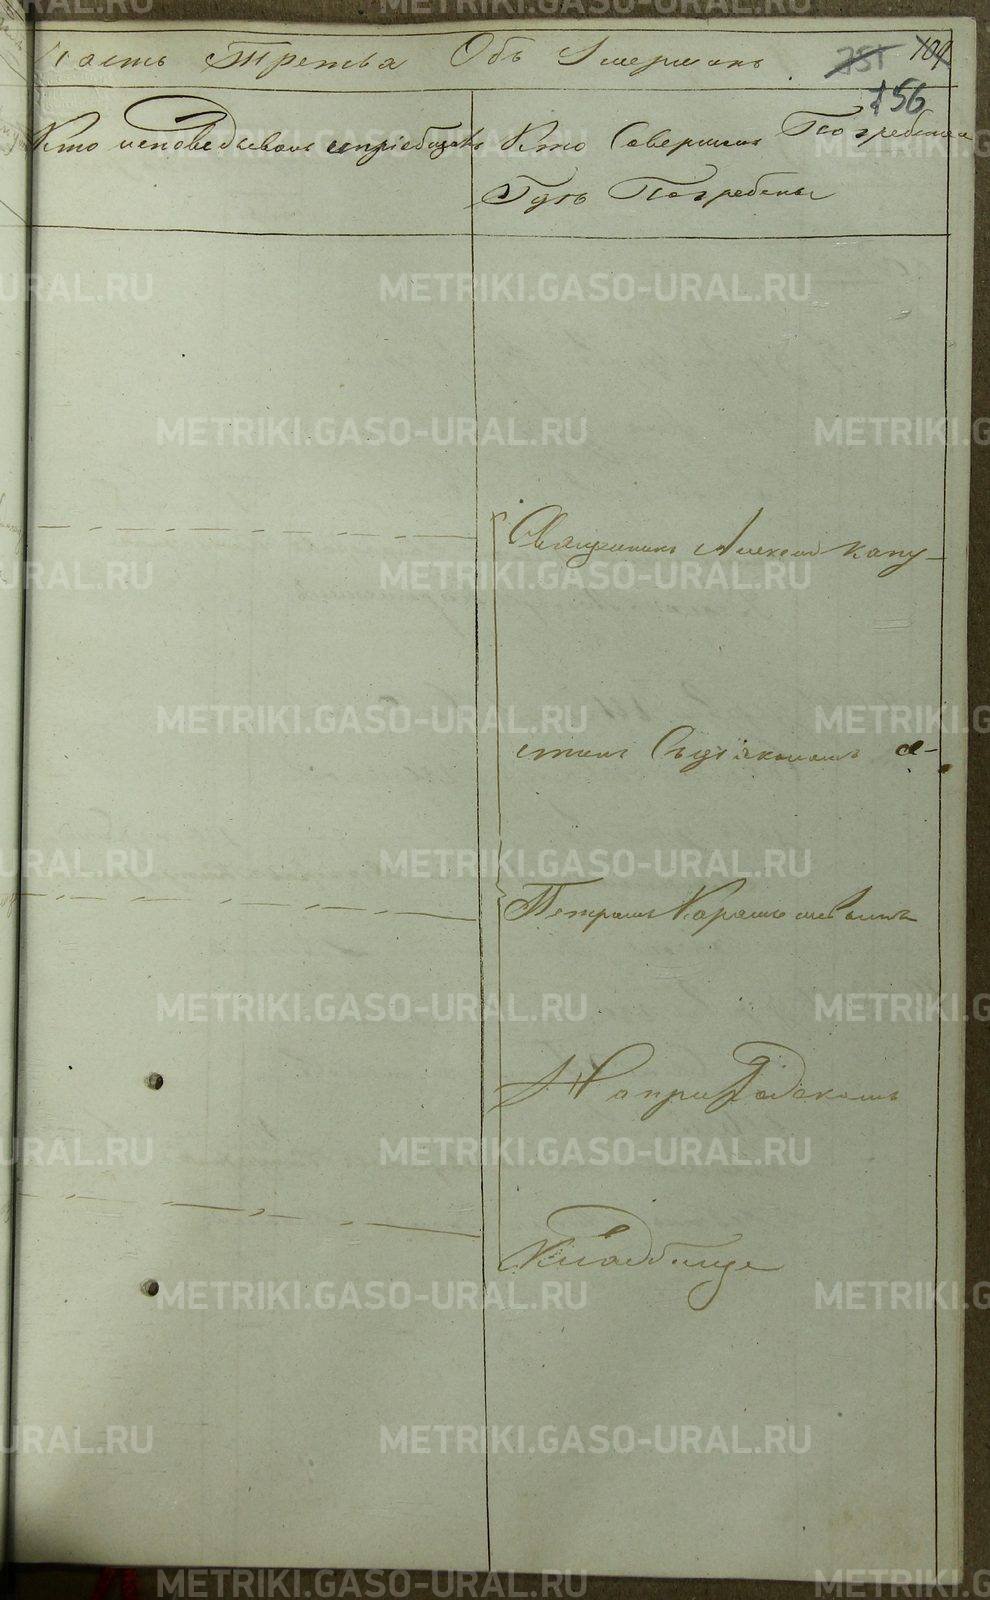 Часть Третья Объ Умершихъ
251 104
156
Кто исповедывалъ и приобщалъ
Кто Совершалъ Погребение
Гдѣ Погребены
Священникъ Алексѣй Капу-
стинъ Съ дьякономъ
Петромъ
На приходскомъ
Кладбище
METRIKI.GASO-URAL.RU